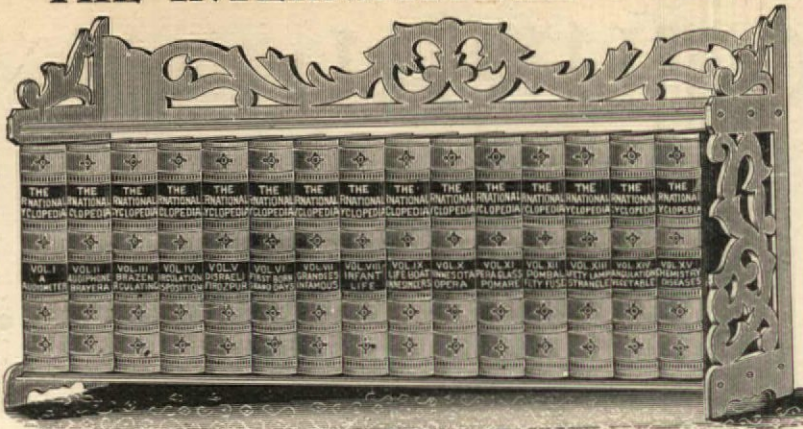 THE
THE
RNATIONAL
YCLOPEDIA
VOL.I
A
UDIOMETER
THE
RNATIONAL
YCLOPEDIA
VOL.II
UDIOPHONE
BRAYERA
THE
ERNATIONAL
YCLOPEDIA
VOL.III
BRAZEN
RCULATING
THE
RNATIONAL
CLOPEDIA
VOL.IV
RCULATION
ISPOSITION
THE
RNATIONAL
YCLOPEDIA
VOL.V
DISRAELI
FIROZPUR
THE
RNATIONAL
YCLOPEDIA
VOL.VI
FIRST BORN
GRAND DAYS
THE
RNATIONAL
YCLOPEDIA
VOL.VII
INFAMOUS
THE
RNATIONAL
YCLOPEDIA
VOL.VIII
INFANT
LIFE
THE
RNATIONAL
YCLOPEDIA
VOL.IX
LIFE BOAT
NNESINGERS
THE
RNATIONAL
YCLOPEDIA
VOL.X
NNESOTA
OPERA
THE
RNATIONAL
YCLOPEDIA
VOL.XI
PERA GLASS
POMARE
THE
RNATIONAL
YCLOPEDIA
VOL.XII
POMBAL
FETY FUSE
THE
RNATIONAL
YCLOPEDIA
VOL.XIII
FETY LAMP
STRANGLE
THE
RNATIONAL
YCLOPEDIA
VOL.XIV
RANGULATION
VEGETABLE
THE
RNATIONAL
YCLOPEDIA
VOL.XV
CHEMISTRY
DISEASES